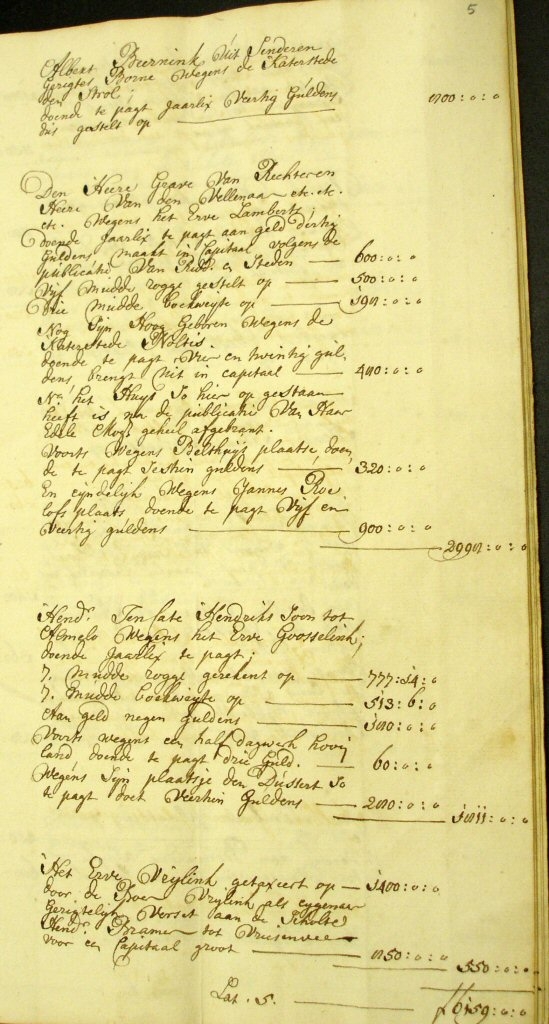 5
Albert Beernink uit Senderen
Gerigtes Borne Wegens de Katerstede
den Strol;
doende te pagt Jaarlix Veertig Guldens
dus gestelt op — 800:0:0
Den Heere Grave Van Rechteren
Heere Van den Vellenaar etc. etc.
etc. Wegens het Erve Lambertz;
doende Jaarlix te pagt aan geld dertig
Guldens, maakt in Capitaal volgens de
publicatie Van Ridd. en Steden — 600:0:0
Vijf mudde rogge gestelt op — 500:0:0
Drie mudde boekweyte op — 192:0:0
Nog Zijn Hoog Geboren Wegens de
Katerstede Noltis.
doende te pagt Vier en twintig gul,
dens brengt uit in capitaal — 480:0:0
Na. het Huys so hier op gestaan
heeft is na de publicatie Van Haar
Edele Mog. geheel afgebrant.
Voorts Wegens Belthuys plaatse, doen,
de te pagt Sestien guldens — 320:0:0
En eyndelijk Wegens Jannes Roe,
lofs plaats doende te pagt Vijf en
Veertig guldens — 900:0:0
— 2992:0:0
Hendr. Ten Cate Hendriks Soon tot
Almelo Wegens het Erve Goosselink;
doende Jaarlix te pagt;
7. Mudde rogge gerekent op — 777:14:0
7. Mudde boekweyte op — 513:6:0
Aan geld negen Guldens — 180:0:0
Voorts wegens een half dagwerk hooij
land doende te pagt drie Guld. — 60:0:0
Wegens Zijn plaatsje den Dussert so
te pagt doet Veertien Guldens — 280:0:0
— 1811:0:0
Het Erve Vrylink getaxeert op — 1400:0:0
door de Vrylink als eygenaar
Gerigtelijk Verset aan de Scholte
Hendr. Bramer tot Vriesenvee
voor een Capitaal groot — 850:0:0
— 550:0:0
Lat. 5. — 6159:0:0